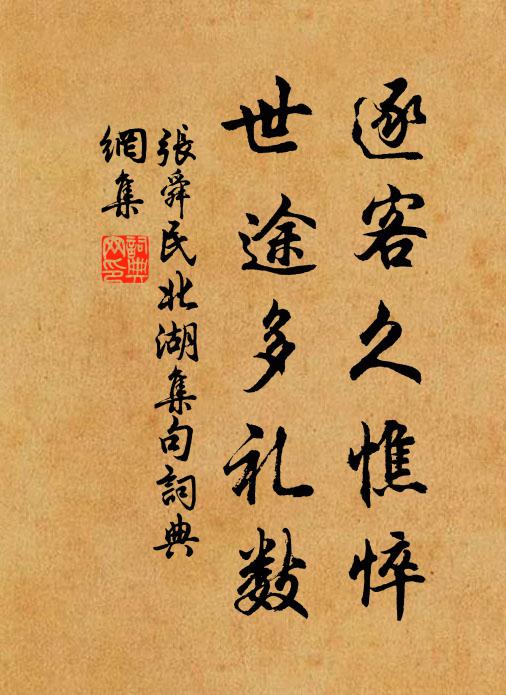 逐客久憔悴
世途多礼数
張舜民北湖集句詞典
網集
詞典
网印